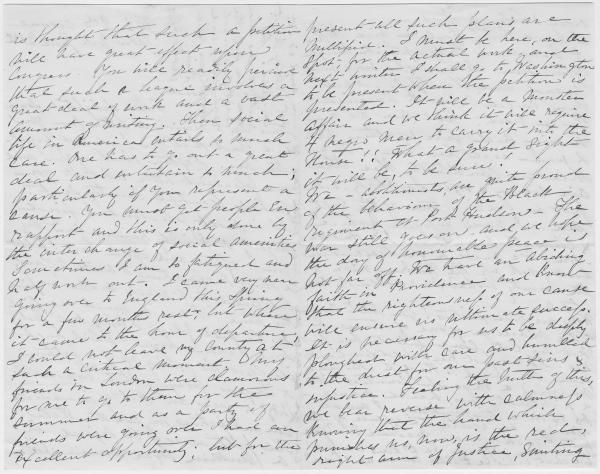 is thought that such a petition
will have great effect upon
Congress. You will readily perceive
that such a league involves a
great deal of work and a vast
amount of writing. Then social
life in America entails so much
care. One has to go out a great
deal and entertain so much;
particularly if you represent a
cause. You must get people en
rapport and this is only done by
the interchange of social amenities
Sometimes I am so fatigued and
half worn out. I came very near
going over to England this Spring
for a few months rest, but when
it came to the hour of departure,
I could not leave my country at
such a critical moment. My
friends in London were clamorous
for me to go to them for the
summer and as a party of
friends were going over I had an
excellent opportunity; but for the
present all such plans are
I must be here, on the
spot, for the actual work, and
next winter I shall go to Washington
to be present when the petition is
presented. It will be a Monster
affair and we think it will require
4 negro men to carry it into the
House!! What a grand sight
it will be, to be sure!
We - abolitionists, are quite proud
of the behaviour of the Black
regiment at Port Hudson - The
war still goes on and we hope
the day of honourable peace is
not far off. We have an abiding
faith in Providence and know
that the righteousness of our cause
will ensure us ultimate success.
It is necessary for us to be deeply
ploughed with care and humbled
to the dust for our past sins &
injustice. Feeling the truth of this,
we bear reverse with calmness
knowing that the hand which
punishes us, now, is the red,
right arm of Justice, smiting